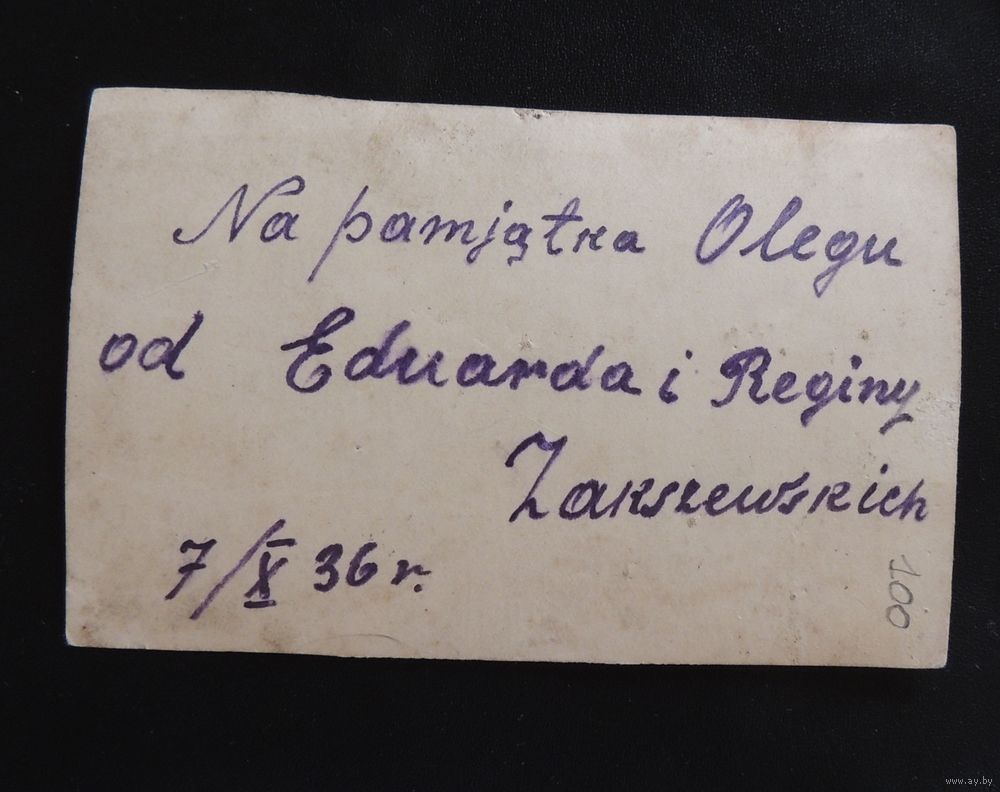 Na pamjątka Olegu
od Eduarda i Reginy
Zakszewskich
7/X 36 r.
100
www.ay.by